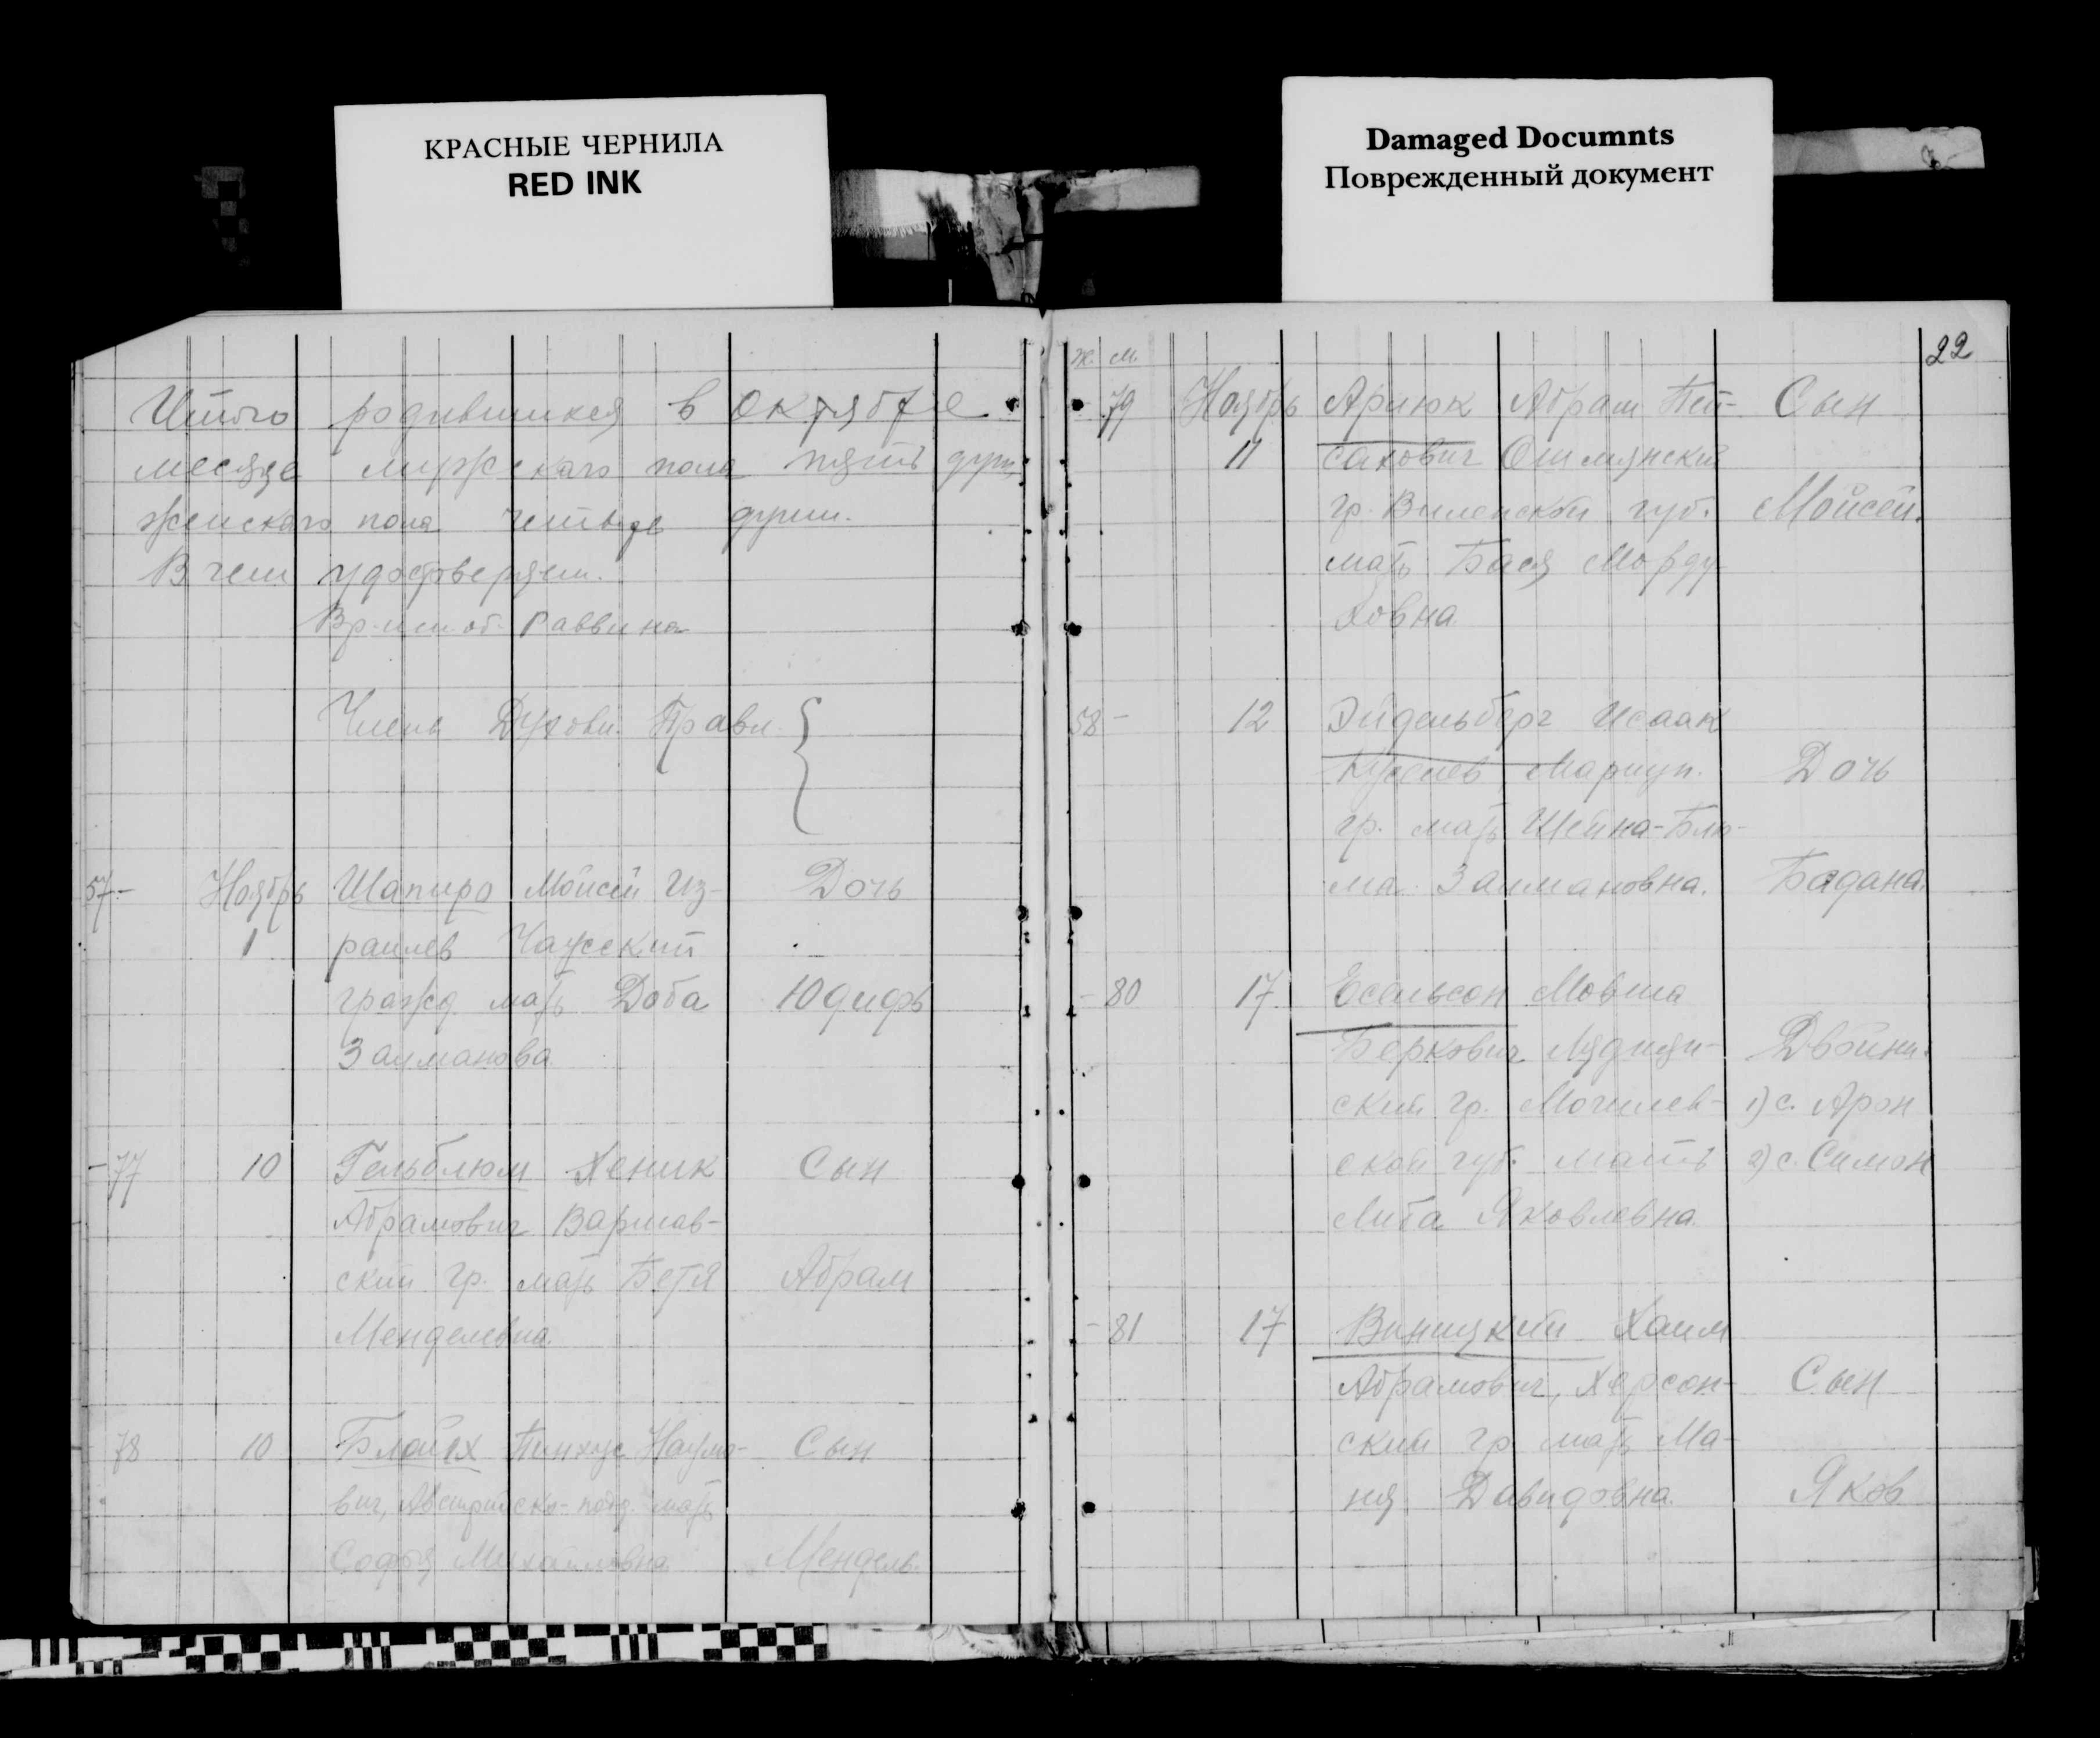 КРАСНЫЕ ЧЕРНИЛА
RED INK
Damaged Documnts
Поврежденный документ
Итого родившихся в Октябре
месяце мужскаго пола пять душ
женскаго пола четыре души.
В чем удостоверяем.
Вр. исп. об. Раввина
Члены Духовн. Правл.
57- Ноябрь Шапиро Мойсей Из- Дочь
1 раилев Чаусский
гражд. мать Доба Юдифь
Залманова
-77 10 Гельблюм Хеник Сын
Абрамович Варшав-
ский гр. мать Бетя Абрам
Менделевна.
78 10 Блайх Пинхус Наумо- Сын
вич, Австрийско-подд. мать
Софья Михайловна Мендель.
22
Ж. М.
79 Ноябрь Ариюк Абрам Пей- Сын
11 сахович Ошмянский
гр. Виленской губ. Мойсей.
мать Бася Морду-
ховна
58- 12 Эйдельберг Исаак
Мариуп. Дочь
гр. мать Шейна-Блю-
ма Залмановна. Бадана.
-80 17 Есельсон Мовша
Беркович Двойни.
ский гр. Могилев- 1) с. Арон
ской губ. мать 2) с. Симон
Либа Яковлевна.
-81 17 Виницкий Хаим
Абрамович, Херсон- Сын
ский гр. мать Ма-
ня Давидовна. Яков